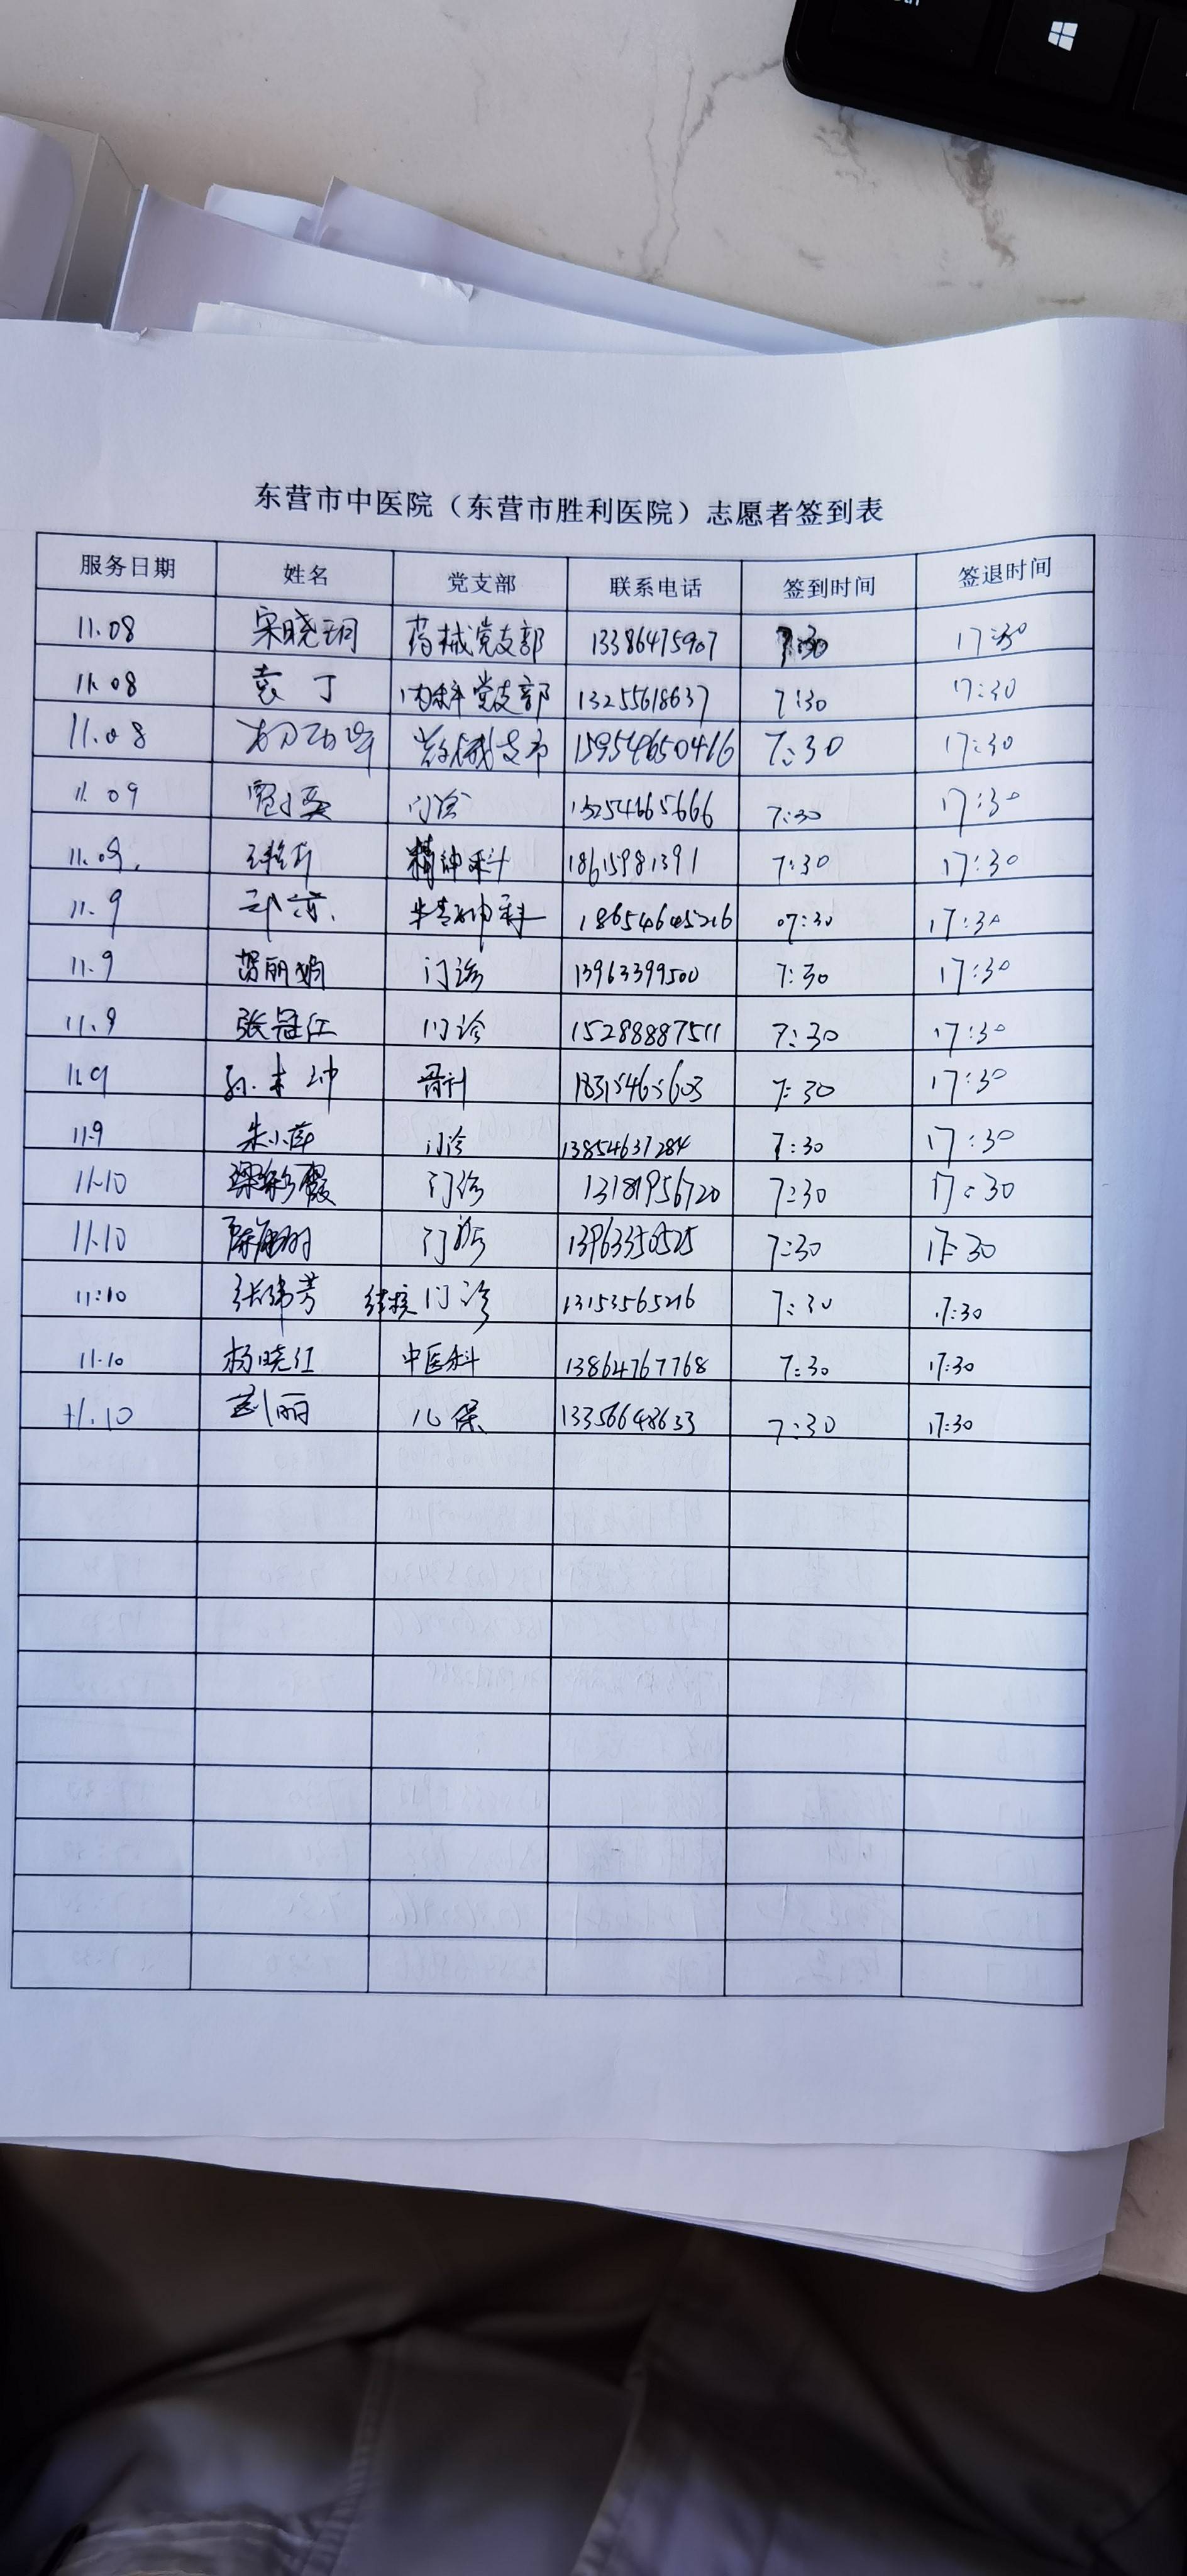 东营市中医院（东营市胜利医院）志愿者签到表
服务日期 姓名 党支部 联系电话 签到时间 签退时间
11.08 宋晓玥 药械党支部 13386475907 7:30 17:30
11.08 袁丁 内科党支部 13255618637 7:30 17:30
11.08 药械支部 15954650416 7:30 17:30
11.09 门诊 13254665666 7:30 17:30
11.09. 精神科 18615981391 7:30 17:30
11.9 精神科 07:30 17:30
11.9 贺丽娟 门诊 13963399500 7:30 17:30
11.9 张冠红 门诊 15288887511 7:30 17:30
11.9 骨科 18315465603 7:30 17:30
11.9 朱小萍 门诊 13854637284 7:30 17:30
11.10 梁彩霞 门诊 13181956720 7:30 17:30
11.10 门诊 13963350525 7:30 17:30
11:10 张伟芳 结核门诊 13153565216 7:30 17:30
11.10 杨晓红 中医科 13864767768 7:30 17:30
11.10 彭丽 儿保 13356648633 7:30 17:30